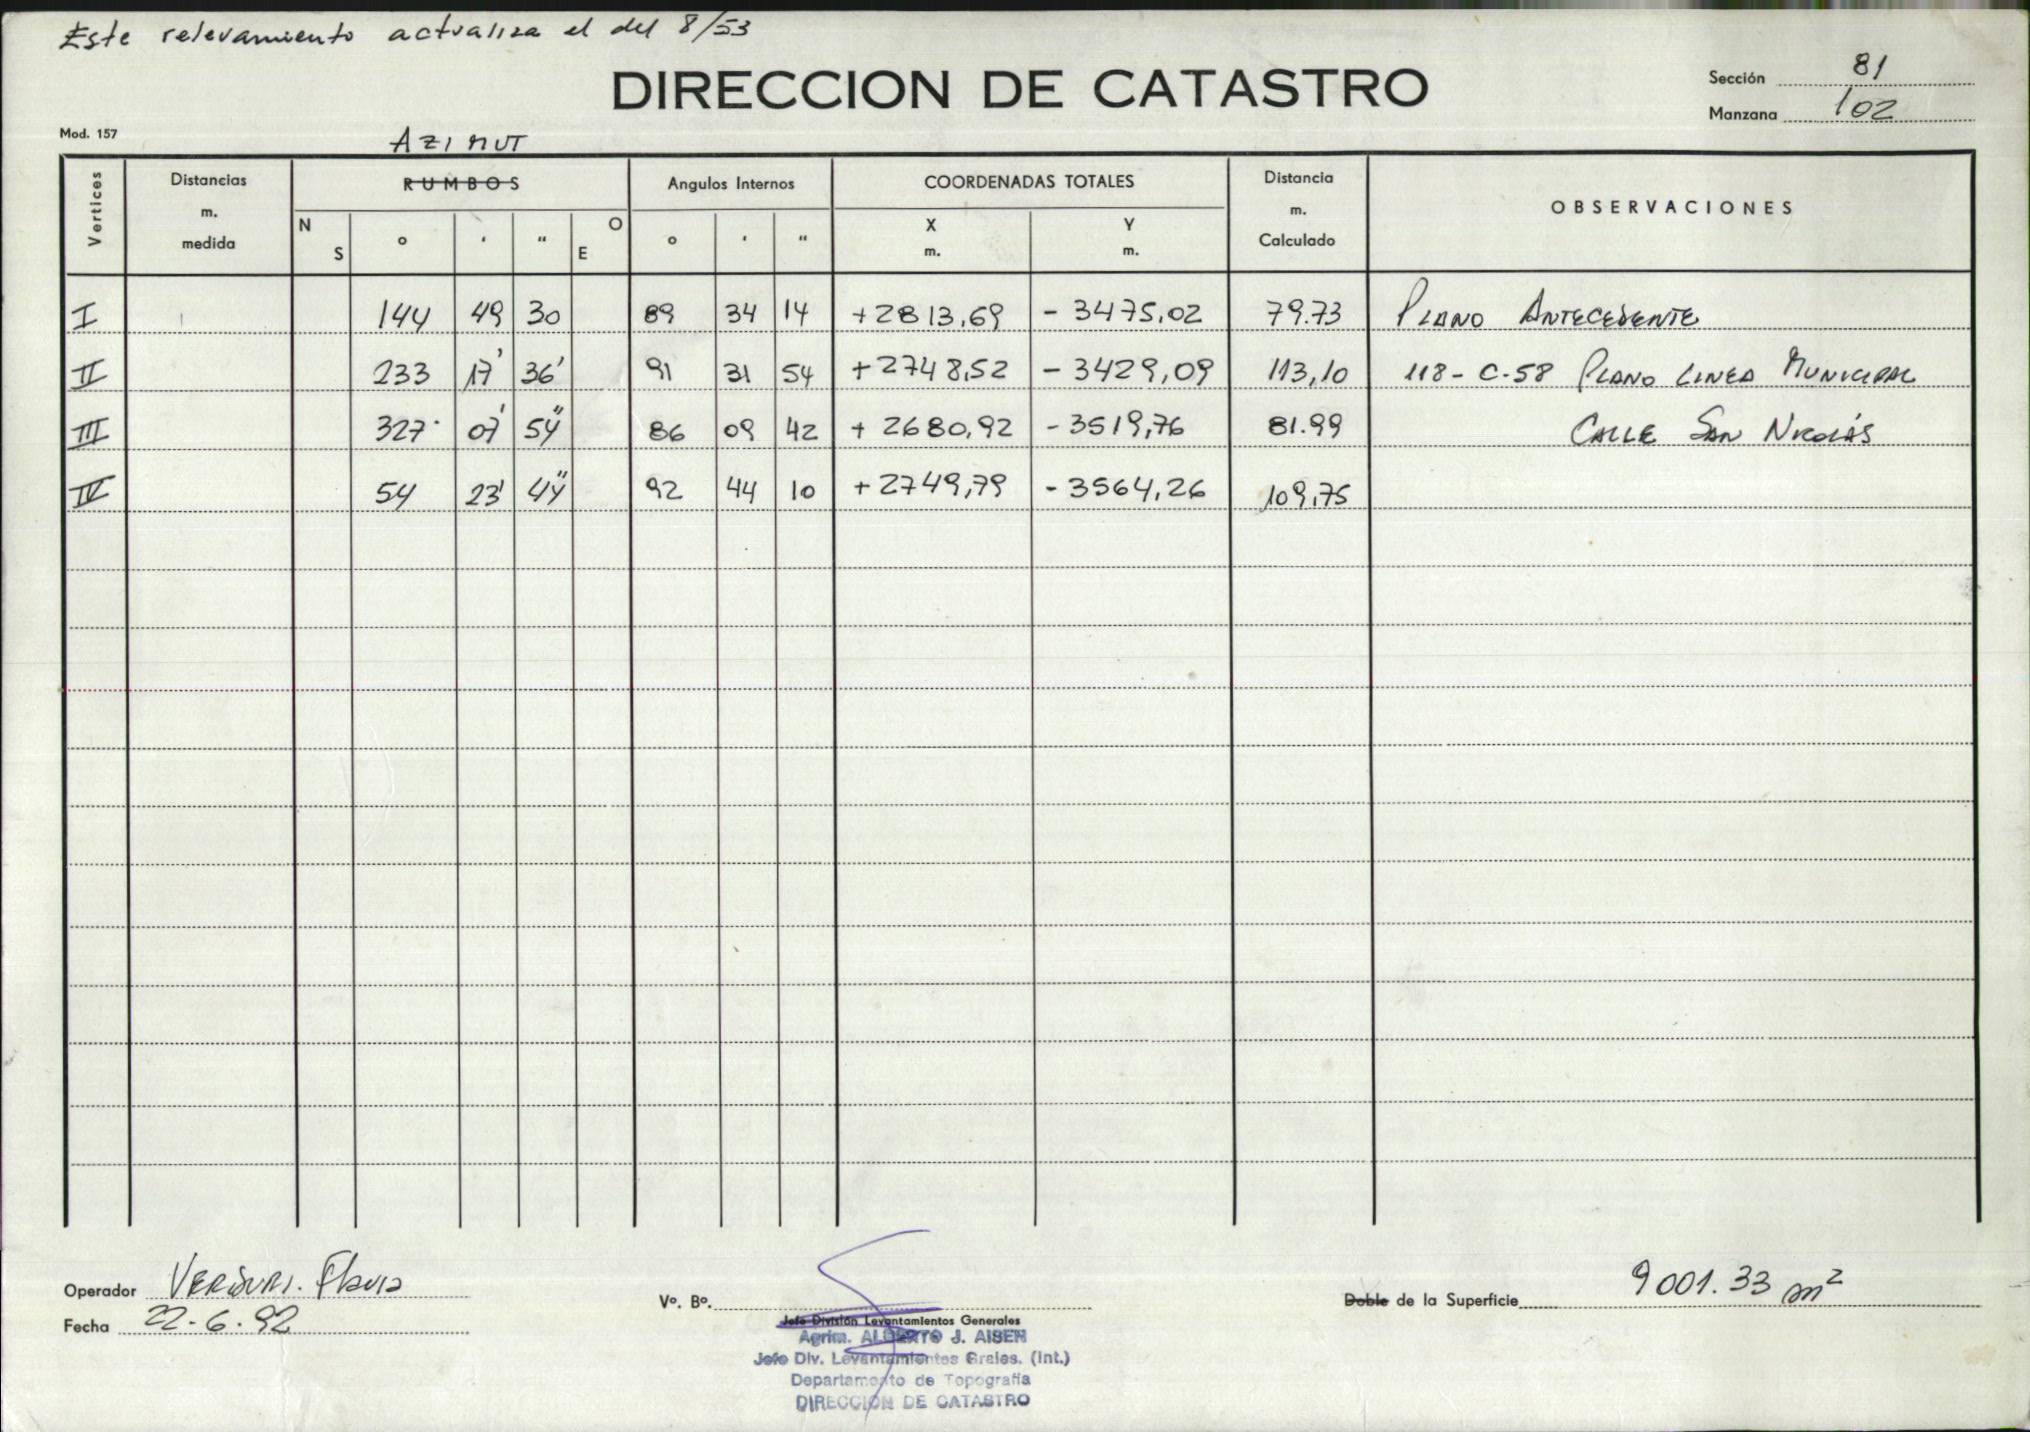 Este relevamiento actualiza el del 8/53
DIRECCION DE CATASTRO
Sección 81
Manzana 102
Mod. 157
AZIMUT
Vertices
Distancias
m.
medida
RUMBOS
N
S
o
'
"
O
E
Angulos Internos
o
'
"
COORDENADAS TOTALES
X
m.
Y
m.
Distancia
m.
Calculado
OBSERVACIONES
I 144 49 30 89 34 14 +2813,69 - 3475,02 79.73 PLANO ANTECEDENTE
II 233 17' 36' 91 31 54 +2748,52 - 3429,09 113,10 118-C-58 PLANO LINEA MUNICIPAL
III 327 07' 54" 86 09 42 + 2680,92 -3519,76 81.99 CALLE SAN NICOLÁS
IV 54 23' 44" 92 44 10 +2749,79 -3564,26 109,75
Operador
Fecha 22-6-92
Vº. Bº.
Jefe División Levantamientos Generales
Agrim. ALBERTO J. AISEN
Jefe Div. Levantamientos Grales. (Int.)
Departamento de Topografía
DIRECCION DE CATASTRO
Doble de la Superficie 9001.33 m²